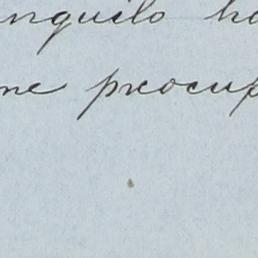 nquilo ha
me preocup